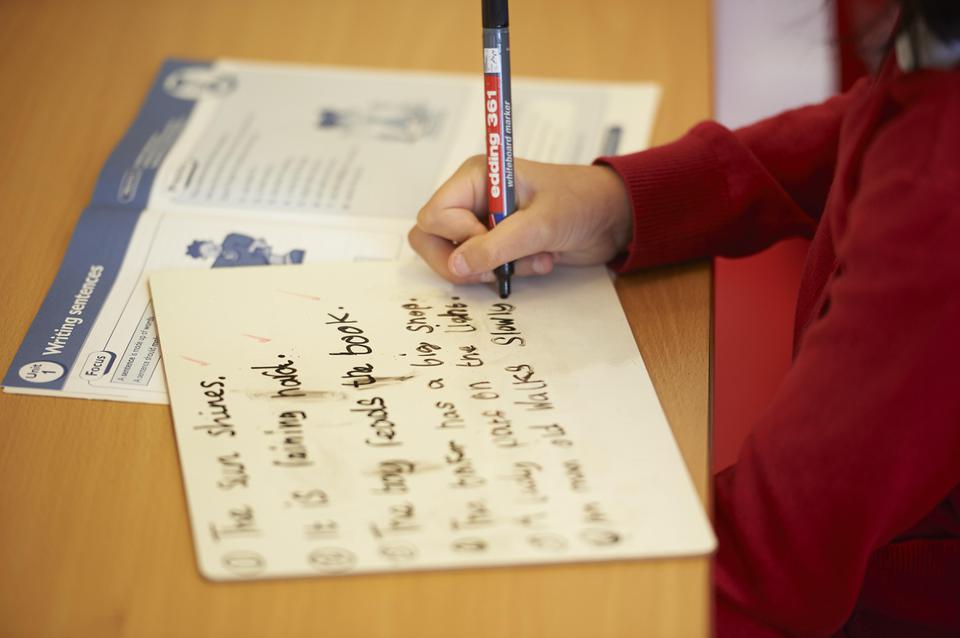 ① The sun shines.
② It is raining hald.
③ The boy leads the book.
④ The baker has a big shop.
⑤ A lady puts on the light.
⑥ An man old walks slowly
edding 361
whiteboard marker
Unit 1
Writing sentences
Focus
A sentence is made up of words
A sentence should